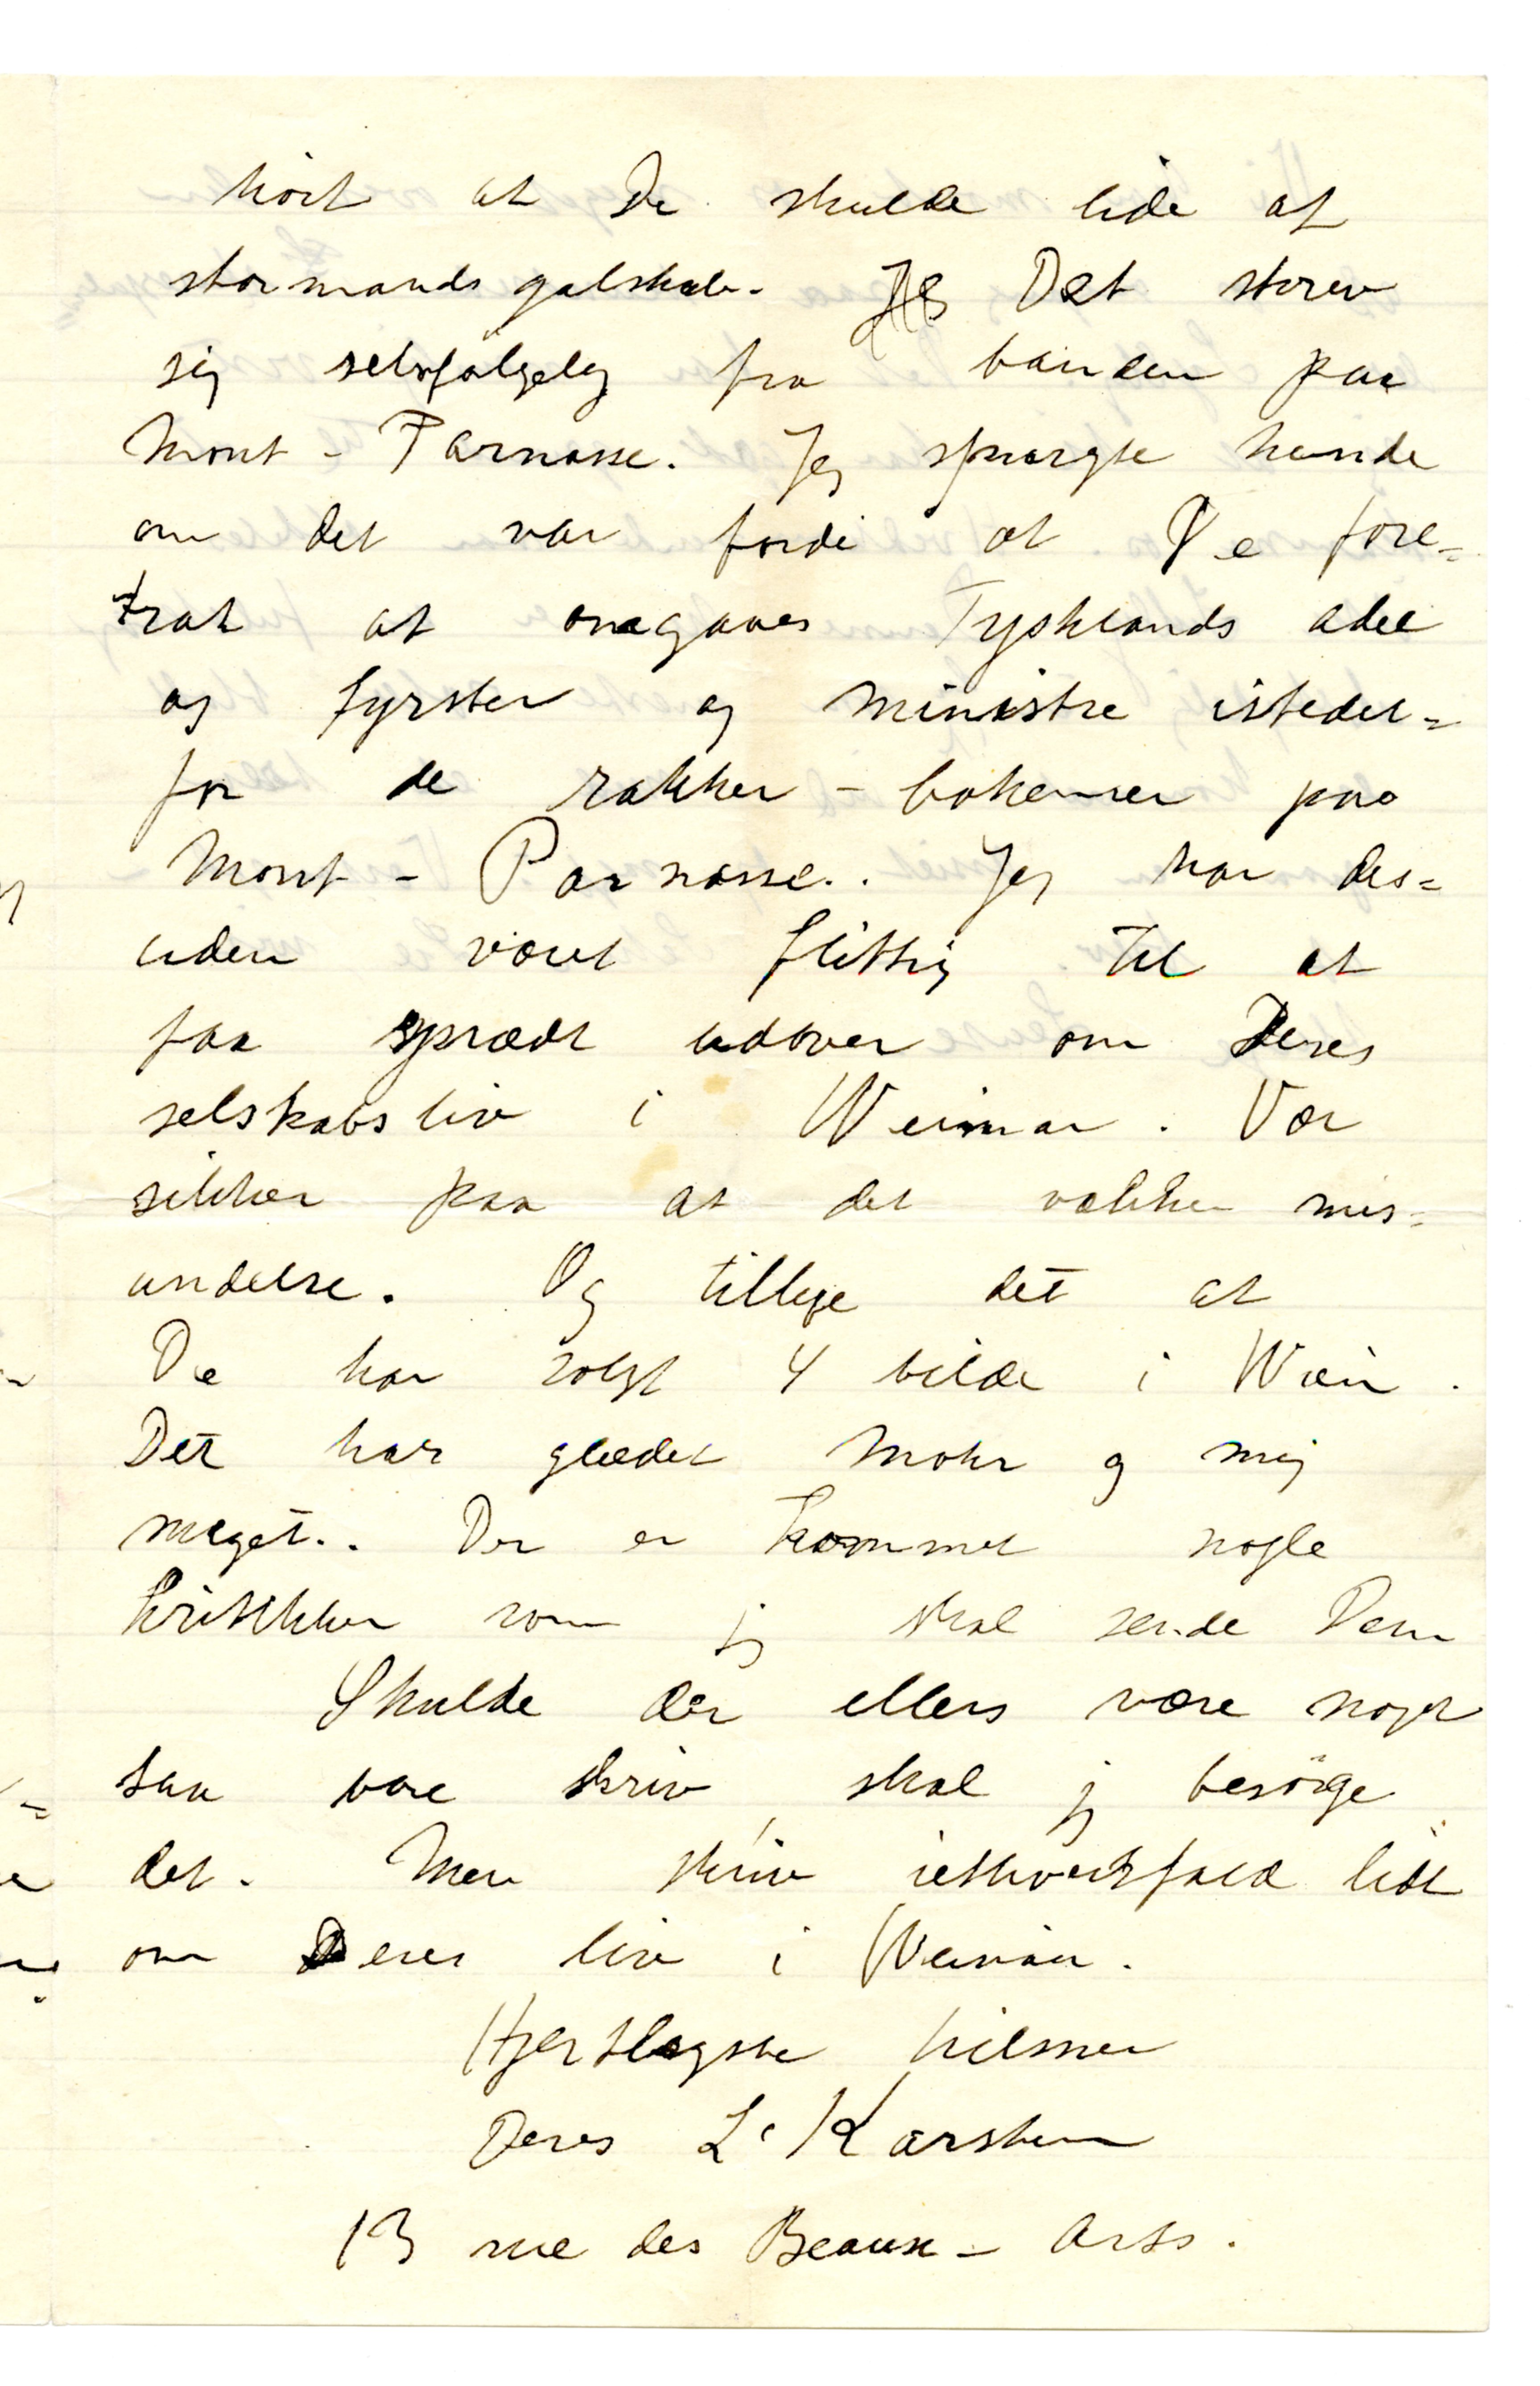 hört at De skulde lide af
stormandsgalskab. Jeg Det skrev
sig selvfølgelig fra banden paa
Mont-Parnasse. Jeg spurgte hende
om det var fordi at De fore=
trak at omgaaes Tysklands adel
og fyrster og ministre istedet=
for de rakker-bohemer paa
Mont-Parnasse.. Jeg har des=
uden været flittig til at
faa spredt udover om Deres
selskabsliv i Weimar. Vær
sikker paa at det vækker mis=
undelse. Og tillige det at
De har solgt 4 bilder i Wien.
Det har glædet Mohr og mig
meget.. Der er kommet nogle
kritikker som jeg skal sende Dem
Skulde der ellers være noget
saa bare skriv, skal jeg besörge
det. Men skriv iethvertfald lidt
om Deres liv i Weimar.
Hjerteligste hilsner
Deres L. Karsten
13 rue des Beaux-Arts.